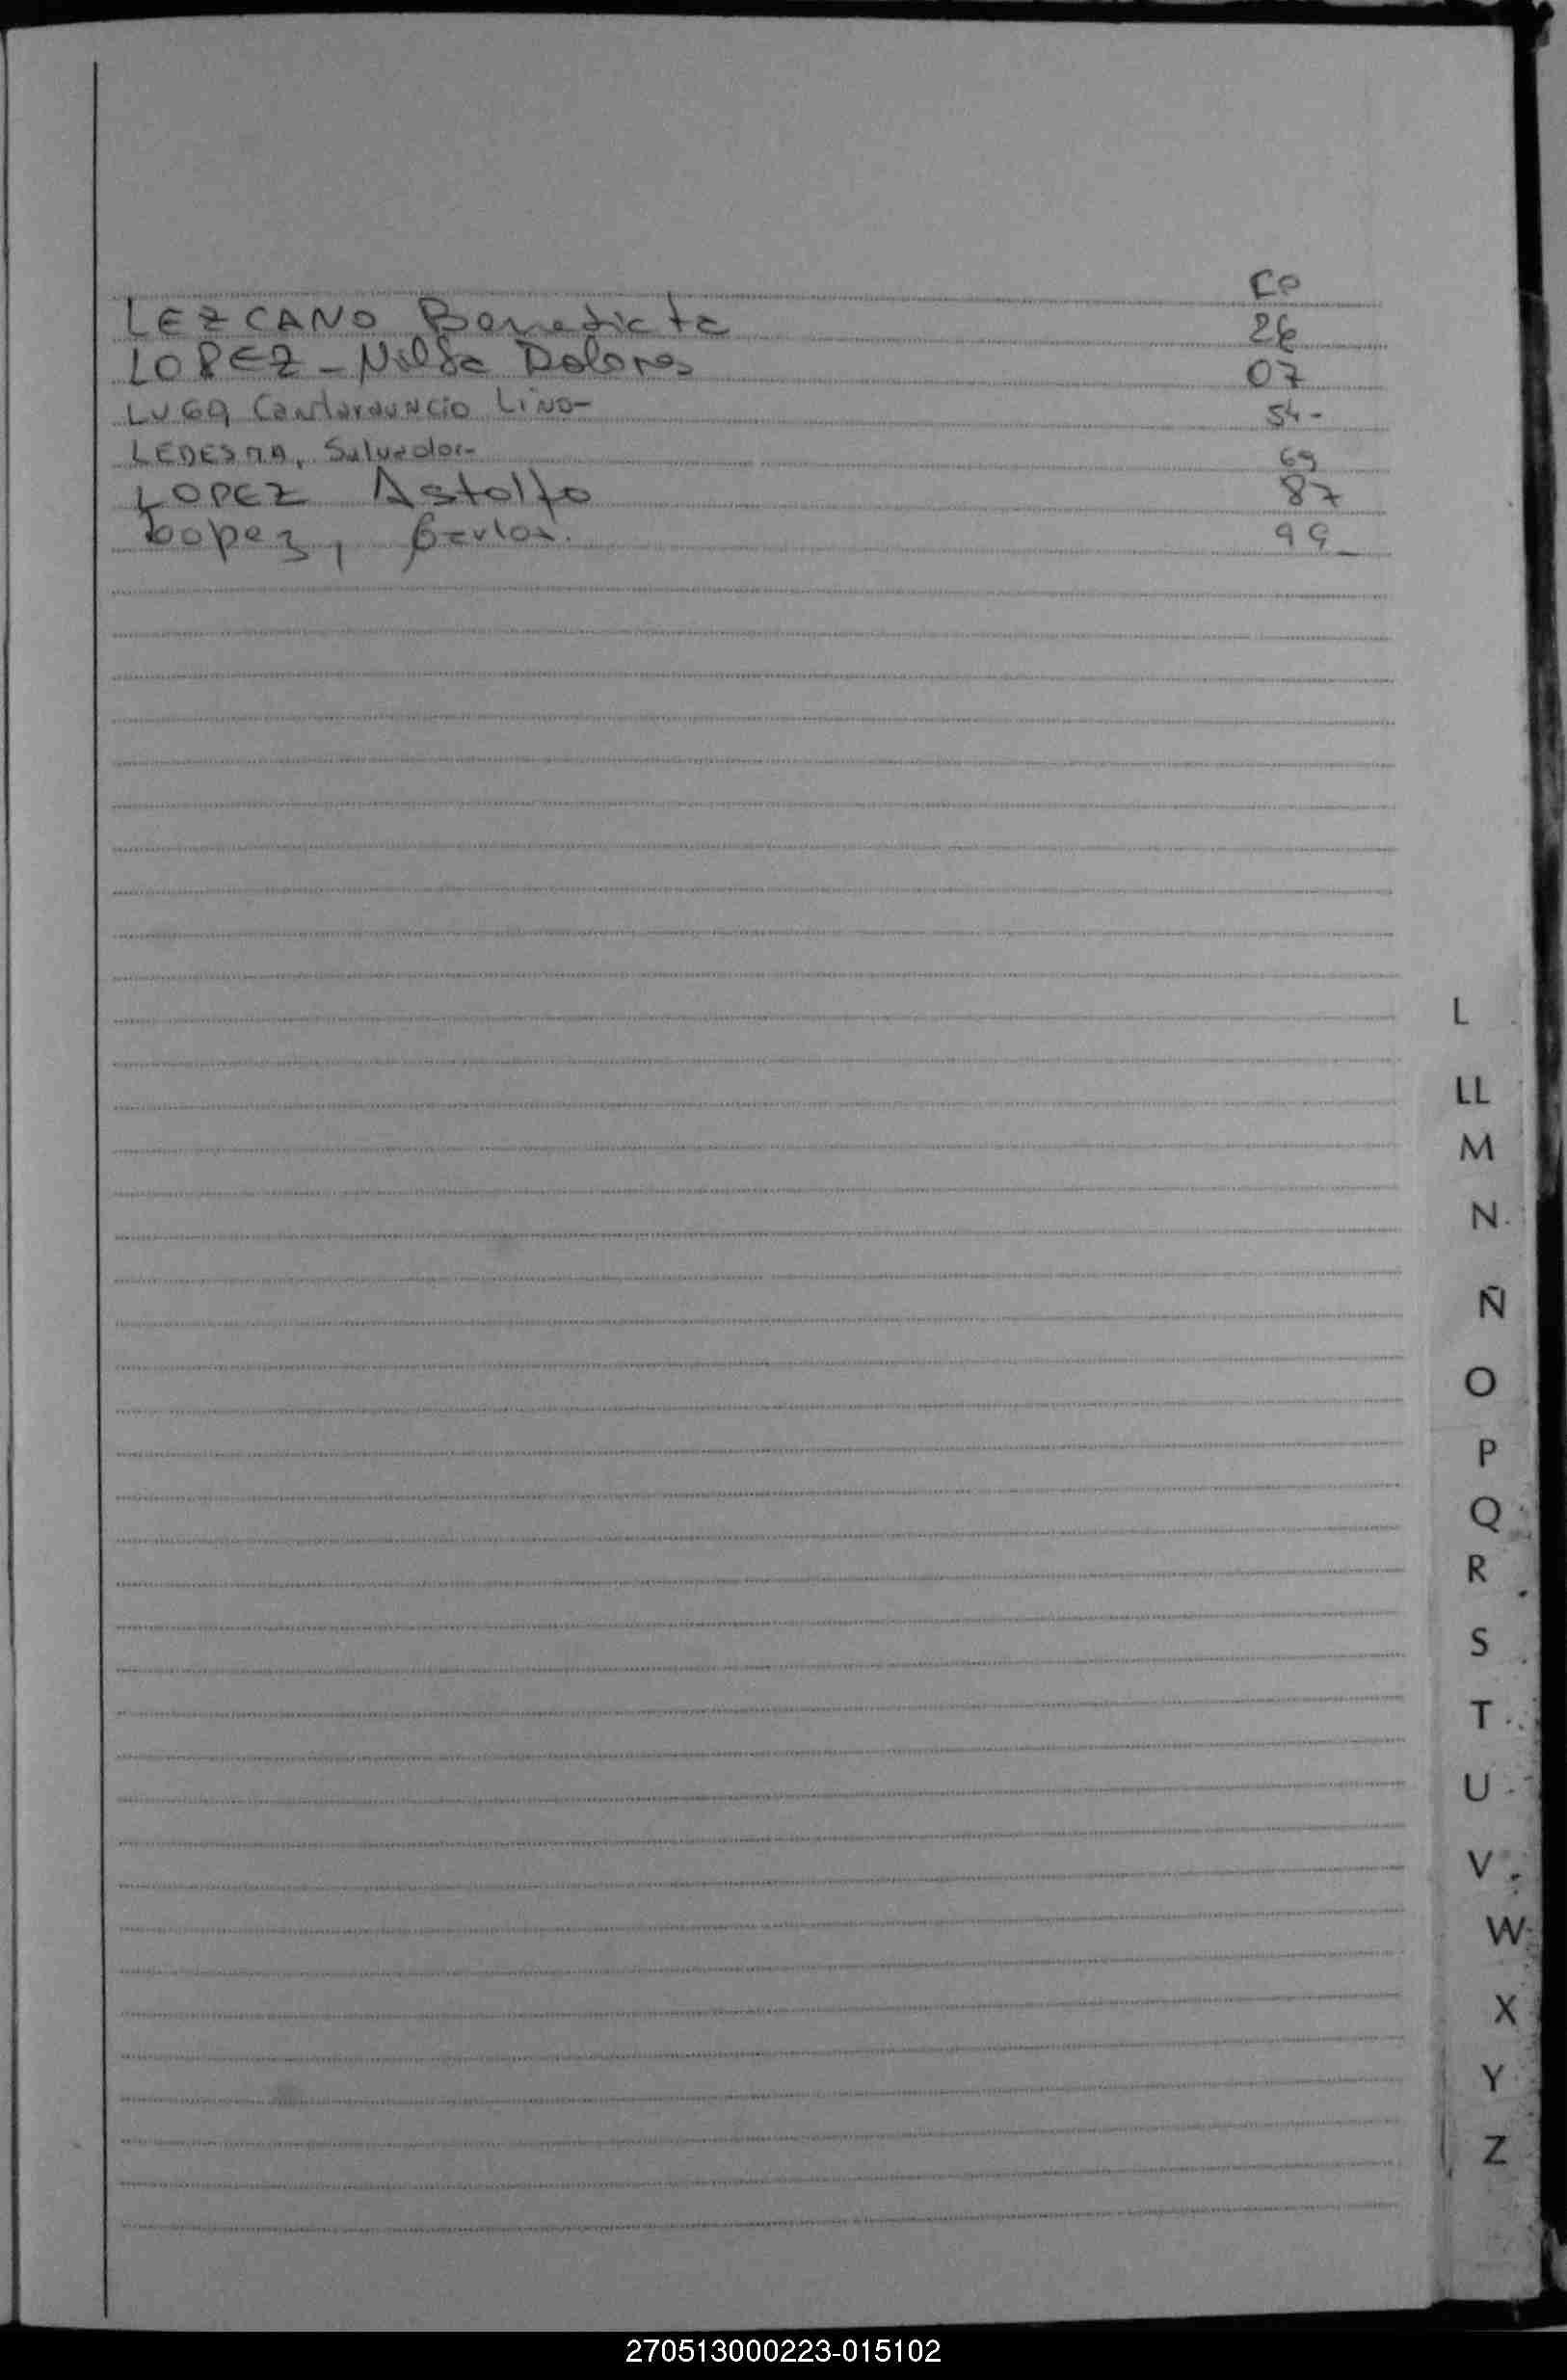 Fo
LEZCANO Benedicta 26
LOPEZ - Nilda Dolores 07
LUGO, Lino- 54-
LEDESMA, Salvador- 69
LOPEZ Astolfo 87
Lopez, Carlos. 99_
L
LL
M
N
Ñ
O
P
Q
R
S
T
U
V
W
X
Y
Z
270513000223-015102